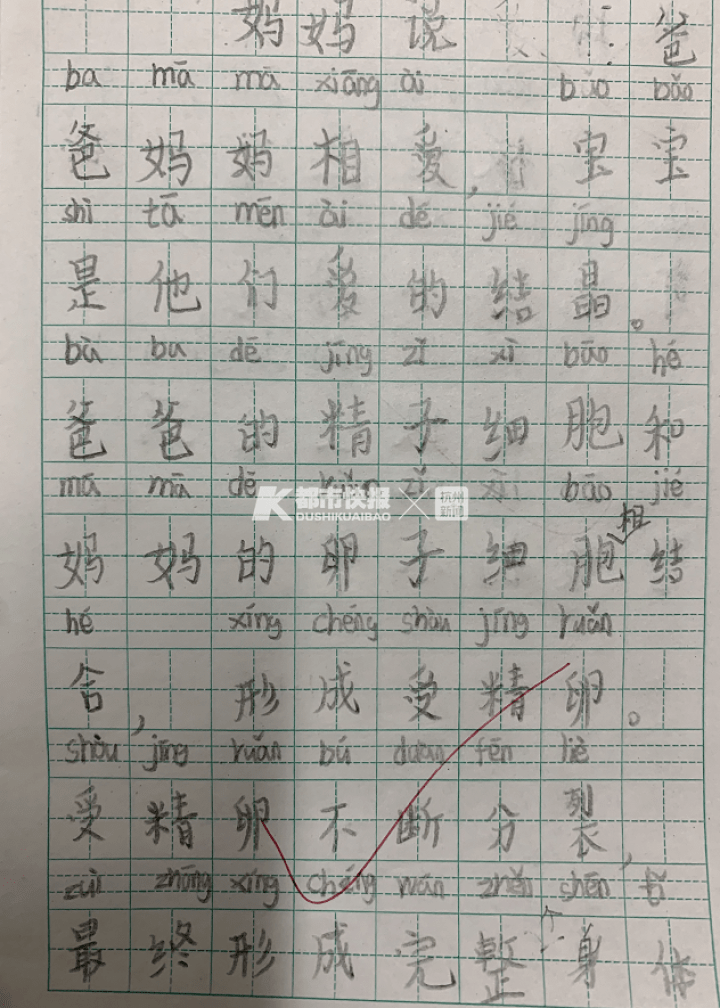 妈妈说：爸
ba mā mā xiāng ài bǎo bǎo
爸妈妈相爱，宝宝
shì tā mēn ài dé jié jīng
是他们爱的结晶。
bà ba dē jīng zǐ xì bāo hé
爸爸的精子细胞和
mā mā dē zǐ xì bāo jié
K都市快报 DUSHIKUAIBAO × 杭州新闻
妈妈的卵子细胞相结
hé xíng chéng shòu jīng ruǎn
合，形成受精卵。
shòu jīng ruǎn bú duàn fēn liè
受精卵不断分裂，
zuì zhōng xíng chéng wán zhěn shēn
最终形成完整个身体